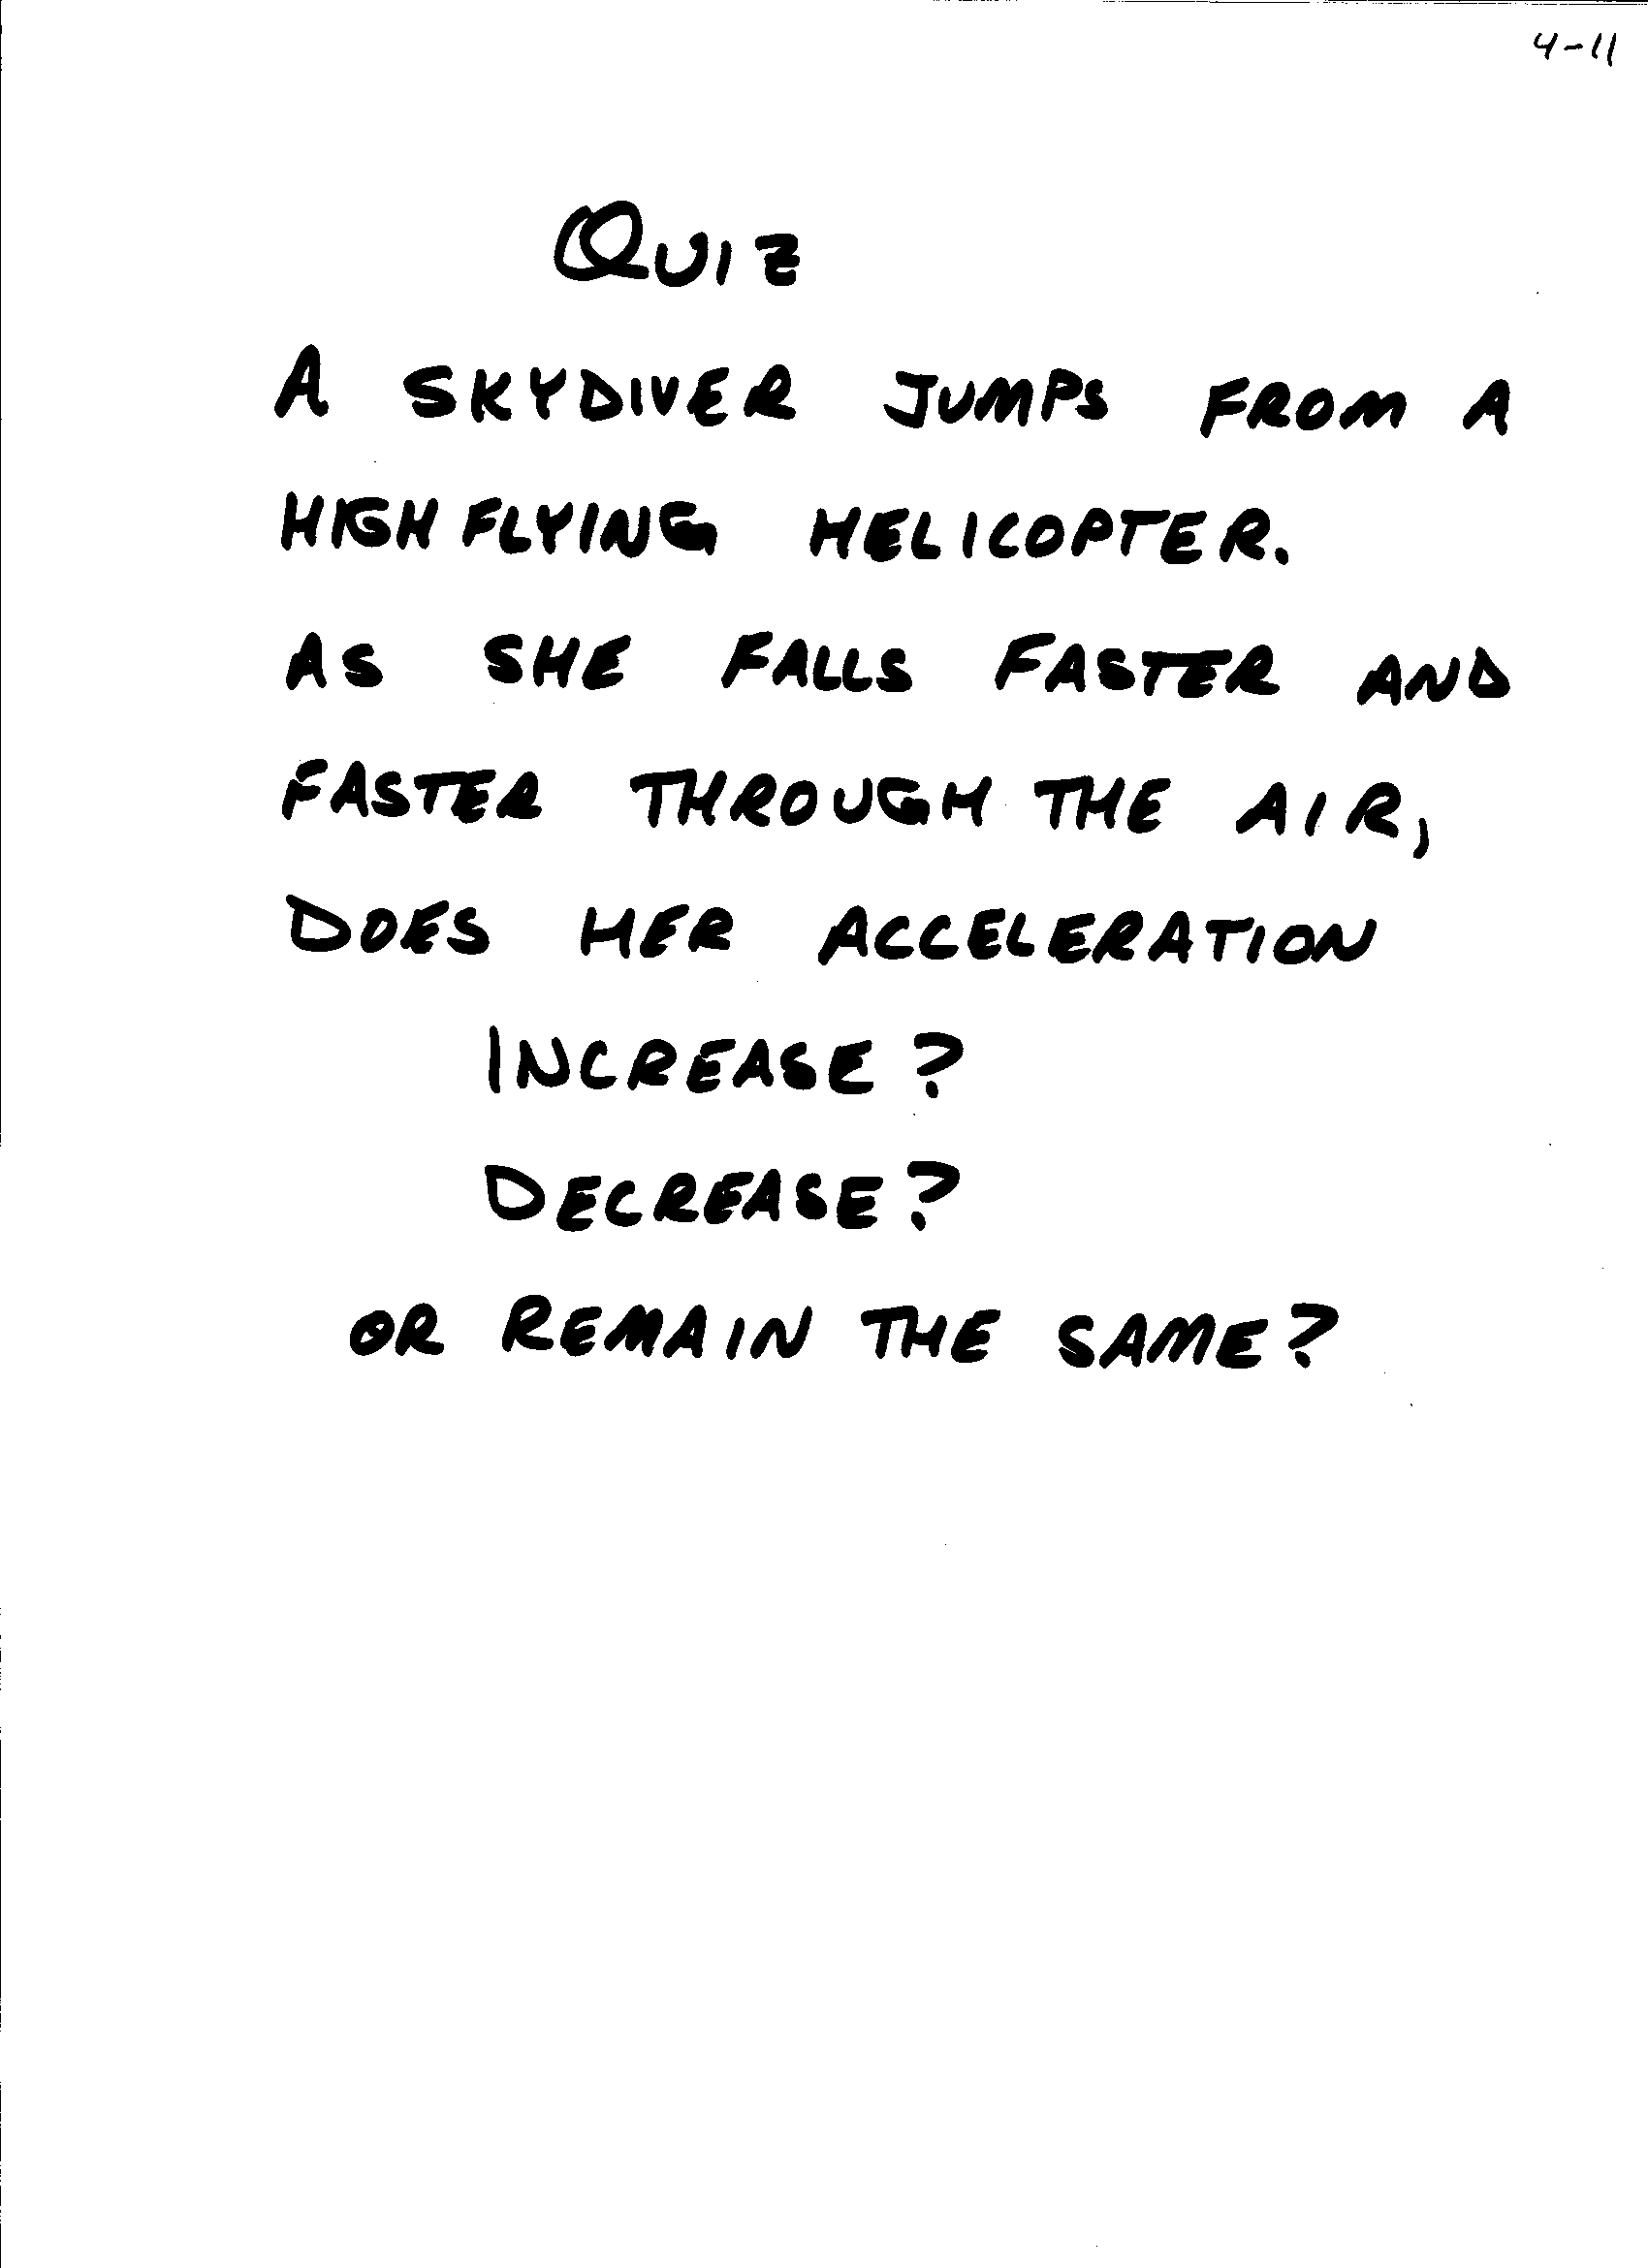 4-11
QUIZ
A SKYDIVER JUMPS FROM A
HIGH FLYING HELICOPTER.
AS SHE FALLS FASTER AND
FASTER THROUGH THE AIR,
DOES HER ACCELERATION
INCREASE?
DECREASE?
OR REMAIN THE SAME?